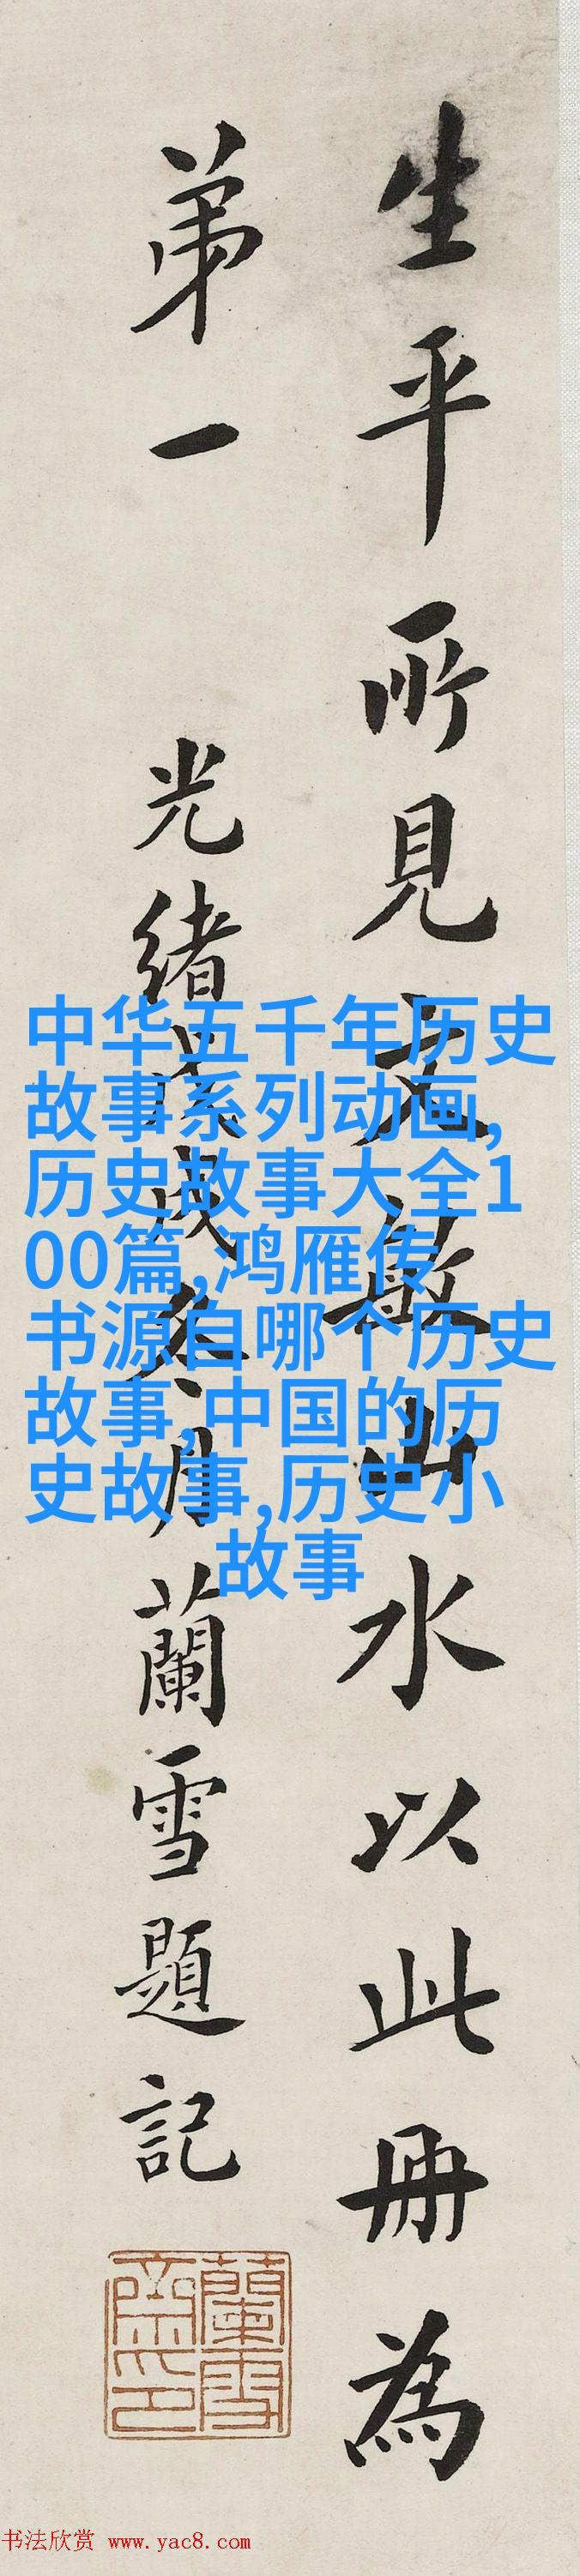 生平所見文敏山水以此冊為
弟一
光緒戊戌冬月蘭雪題記
蘭雪齋印
中华五千年历史
故事系列动画,
历史故事大全1
00篇,鸿雁传
书源自哪个历史
故事,中国的历
史故事,历史小
故事
书法欣赏 www.yac8.com